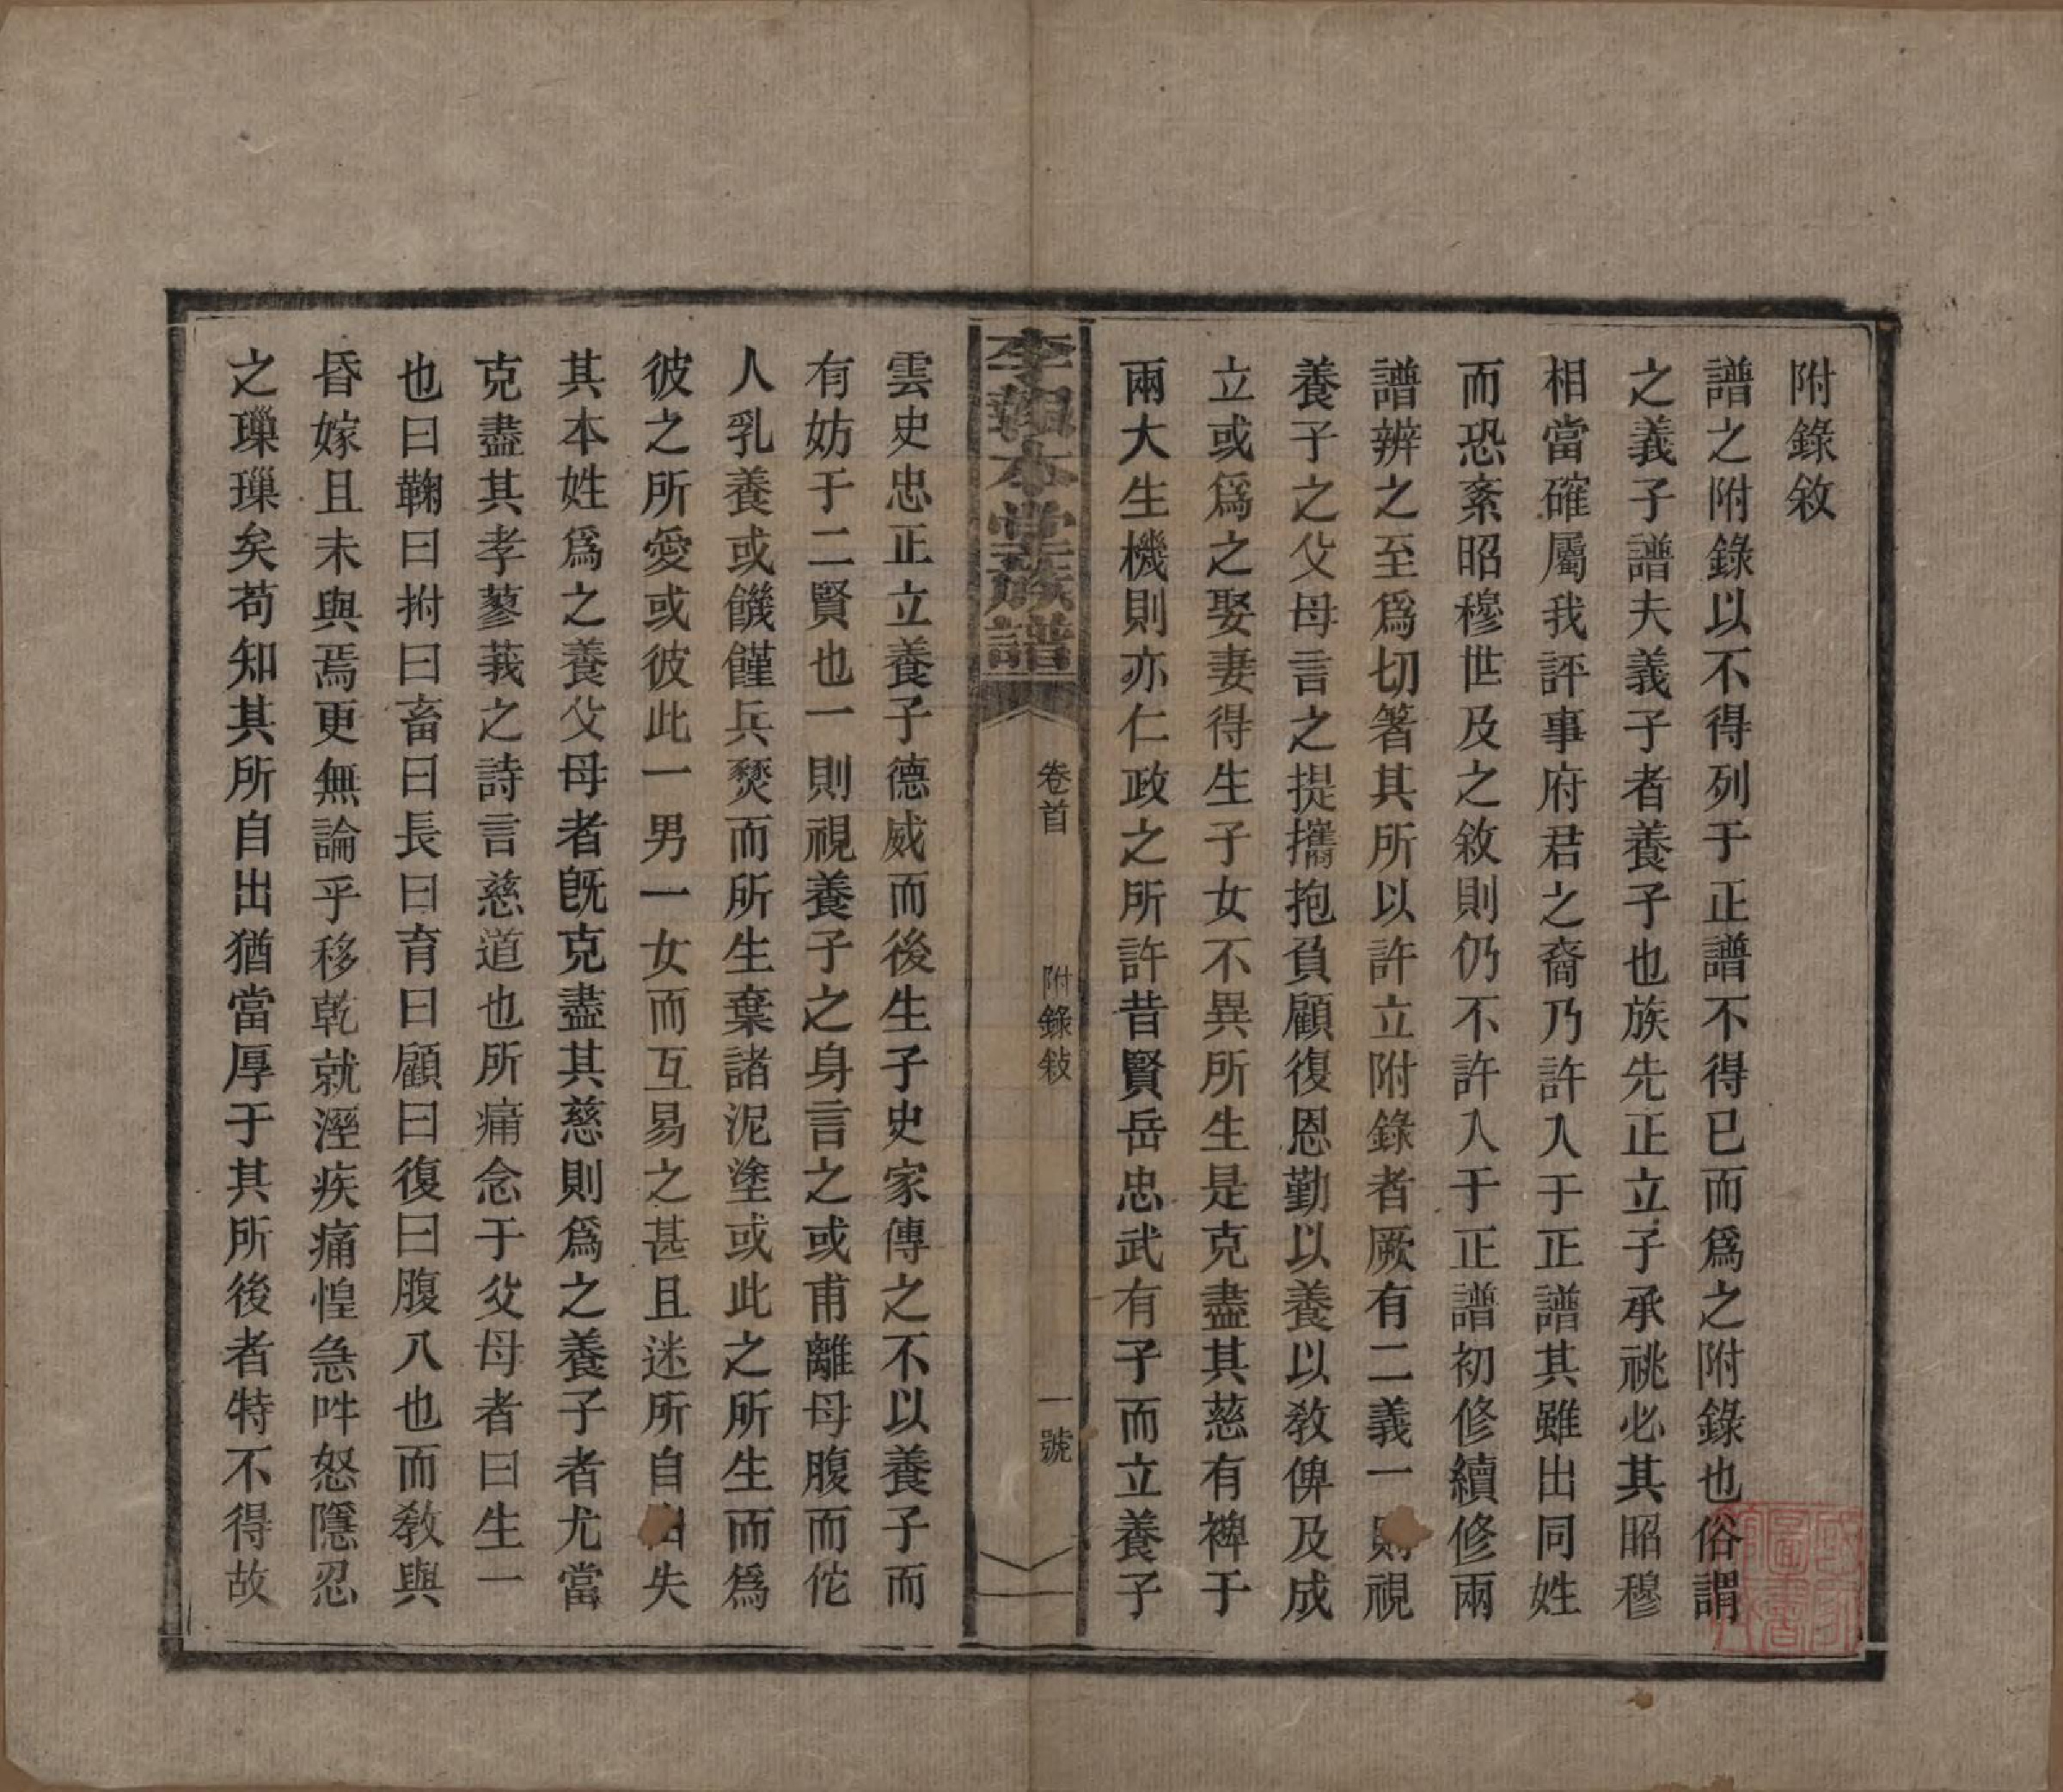 附錄敘
譜之附錄以不得列于正譜不得已而爲之附錄也俗謂
之義子譜夫義子者養子也族先正立子承祧必其昭穆
相當確屬我評事府君之裔乃許入于正譜其雖出同姓
而恐紊昭穆世及之敘則仍不許入于正譜初修續修兩
譜辨之至爲切箸其所以許立附錄者厥有二義一則視
養子之父母言之提攜抱負顧復恩勤以養以教俾及成
立或爲之娶妻得生子女不異所生是克盡其慈有裨于
兩大生機則亦仁政之所許昔賢岳忠武有子而立養子
李報本堂族譜
卷首
附錄敍
一號
雲史忠正立養子德威而後生子史家傳之不以養子而
有妨于二賢也一則視養子之身言之或甫離母腹而佗
人乳養或饑饉兵燹而所生棄諸泥塗或此之所生而爲
彼之所愛或彼此一男一女而互易之甚且迷所自出失
其本姓爲之養父母者旣克盡其慈則爲之養子者尤當
克盡其孝蓼莪之詩言慈道也所痛念于父母者曰生一
也曰鞠曰拊曰畜曰長曰育曰顧曰復曰腹八也而教與
昏嫁且未與焉更無論乎移乾就溼疾痛惶急吽怒隱忍
之璅璅矣苟知其所自出猶當厚于其所後者特不得故